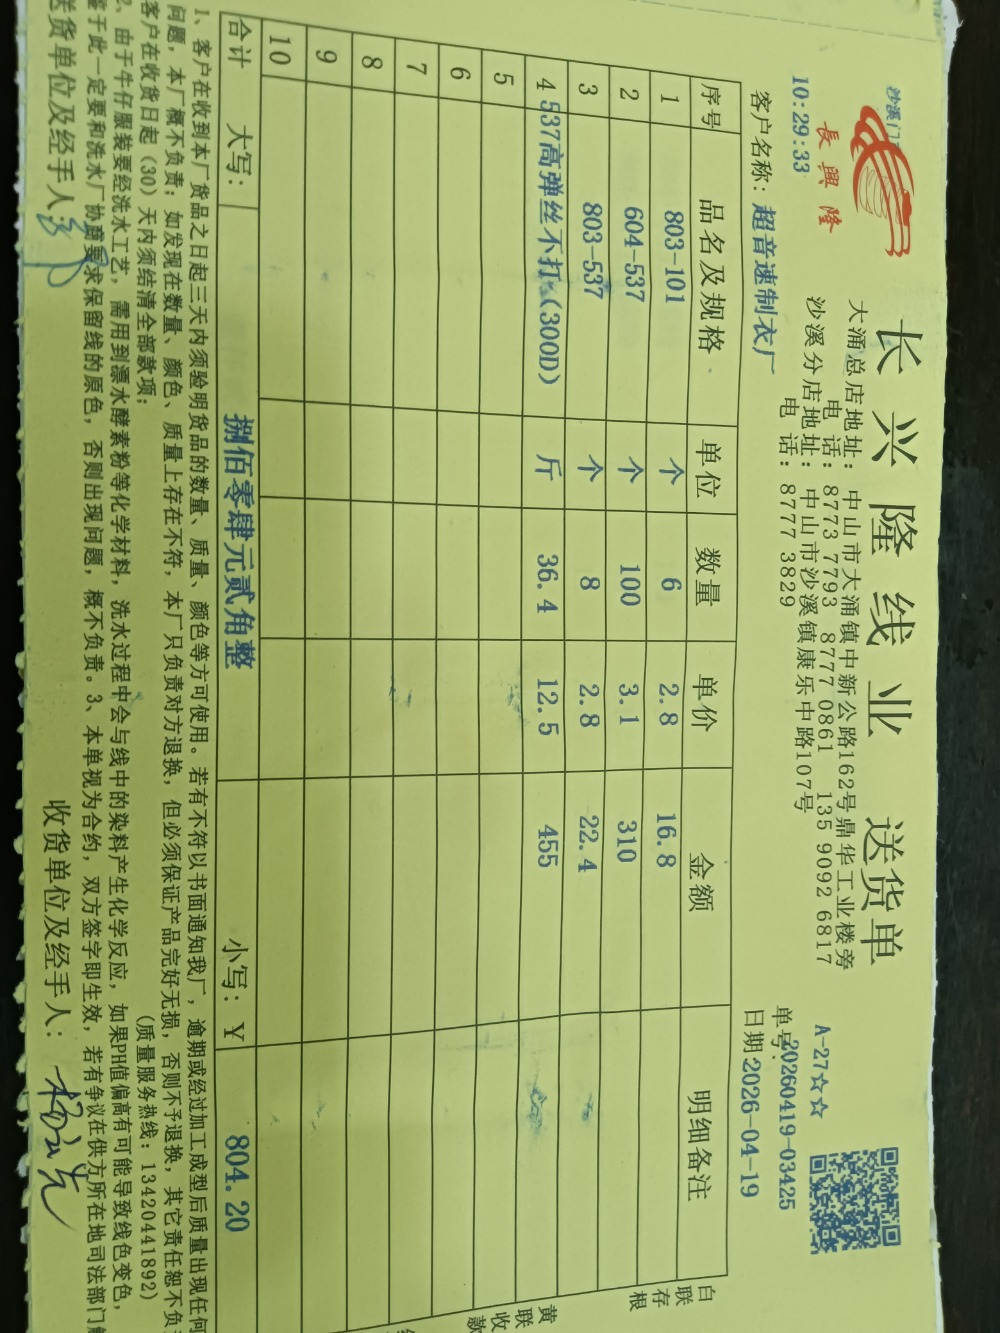 長興隆
沙溪门
10:29:33
长兴隆线业 送货单
大涌总店地址: 中山市大涌镇中新公路162号鼎华工业楼旁
电 话: 8773 7793 8777 0861 135 9092 6817
沙溪分店地址: 中山市沙溪镇康乐中路107号
电 话: 8777 3829
A-27☆☆
单号:20260419-03425
客户名称: 超音速制衣厂
日期:2026-04-19
序号 品名及规格 单位 数量 单价 金额 明细备注
1 803-101 个 6 2.8 16.8
2 604-537 个 100 3.1 310
3 803-537 个 8 2.8 22.4
4 537高弹丝不打(300D) 斤 36.4 12.5 455
5
6
7
8
9
10
合计 大写: 捌佰零肆元贰角整 小写: Y 804.20
白联存根
黄联收款
1、客户在收到本厂货品之日起三天内须验明货品的数量、质量、颜色等方可使用。若有不符以书面通知我厂, 逾期或经过加工成型后质量出现任何
问题, 本厂概不负责; 如发现在数量、颜色、质量上存在不符, 本厂只负责对方退换, 但必须保证产品完好无损, 否则不予退换, 其它责任恕不负
客户在收货日起 (30) 天内须结清全部款项; (质量服务热线: 13420441892)
2、由于牛仔服装要经洗水工艺, 需用到漂水酵素粉等化学材料, 洗水过程中会与线中的染料产生化学反应, 如果PH值偏高有可能导致线色变色,
鉴于此一定要和洗水厂协商要求保留线的原色, 否则出现问题, 概不负责。3、本单视为合约, 双方签字即生效, 若有争议在供方所在地司法部门
送货单位及经手人: 收货单位及经手人: